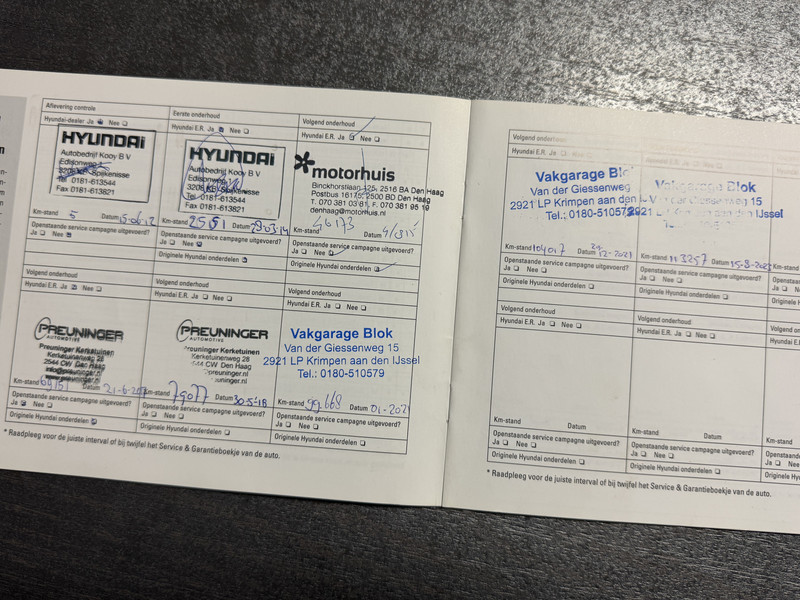 Aflevering controle
Hyundai-dealer Ja Nee
HYUNDAI
Autobedrijf Kooy B V
Edisonweg
Spijkenisse
Tel 0181-613544
Fax 0181-613821
Km-stand 5 Datum
Openstaande service campagne uitgevoerd?
Ja Nee
Eerste onderhoud
Hyundai E.R. Ja Nee
HYUNDAI
Autobedrijf Kooy B V
Edisonweg
Spijkenisse
Tel 0181-613544
Fax 0181-613821
Km-stand Datum
Openstaande service campagne uitgevoerd?
Ja Nee
Originele Hyundai onderdelen
Volgend onderhoud
Hyundai E.R. Ja Nee
motorhuis
Binckhorstlaan 125, 2516 BA Den Haag
Postbus 16175, 2500 BD Den Haag
T. 070 381 03 81, F. 070 381 95 19
denhaag@motorhuis.nl
Km-stand 46173 Datum
Openstaande service campagne uitgevoerd?
Ja Nee
Originele Hyundai onderdelen
Volgend onderhoud
Hyundai E.R. Ja Nee
PREUNINGER
AUTOMOTIVE
Preuninger Kerketuinen
Kerketuinenweg 28
2544 CW Den Haag
Km-stand Datum
Openstaande service campagne uitgevoerd?
Ja Nee
Originele Hyundai onderdelen
Volgend onderhoud
Hyundai E.R. Ja Nee
PREUNINGER
AUTOMOTIVE
Preuninger Kerketuinen
Kerketuinenweg 28
2544 CW Den Haag
Km-stand 79077 Datum 30-5-18
Openstaande service campagne uitgevoerd?
Ja Nee
Originele Hyundai onderdelen
Volgend onderhoud
Hyundai E.R. Ja Nee
Vakgarage Blok
Van der Giessenweg 15
2921 LP Krimpen aan den IJssel
Tel.: 0180-510579
Km-stand 99668 Datum 01-2021
Openstaande service campagne uitgevoerd?
Ja Nee
Originele Hyundai onderdelen
* Raadpleeg voor de juiste interval of bij twijfel het Service & Garantieboekje van de auto.
Volgend onderhoud
Hyundai E.R. Ja
Vakgarage Blok
Van der Giessenweg
2921 LP Krimpen aan den
Tel.: 0180-510579
Km-stand 104017 Datum 12-2021
Openstaande service campagne uitgevoerd?
Ja Nee
Originele Hyundai onderdelen
Vakgarage Blok
Van der Giessenweg 15
2921 LP Krimpen aan den IJssel
Km-stand 113257 Datum
Openstaande service campagne uitgevoerd?
Ja Nee
Originele Hyundai onderdelen
Km-stand
Ja
Volgend onderhoud
Hyundai E.R. Ja Nee
Km-stand Datum
Openstaande service campagne uitgevoerd?
Ja Nee
Originele Hyundai onderdelen
Volgend onderhoud
Hyundai E.R. Ja Nee
Km-stand Datum
Openstaande service campagne uitgevoerd?
Ja Nee
Originele Hyundai onderdelen
Km-stand
* Raadpleeg voor de juiste interval of bij twijfel het Service & Garantieboekje van de auto.